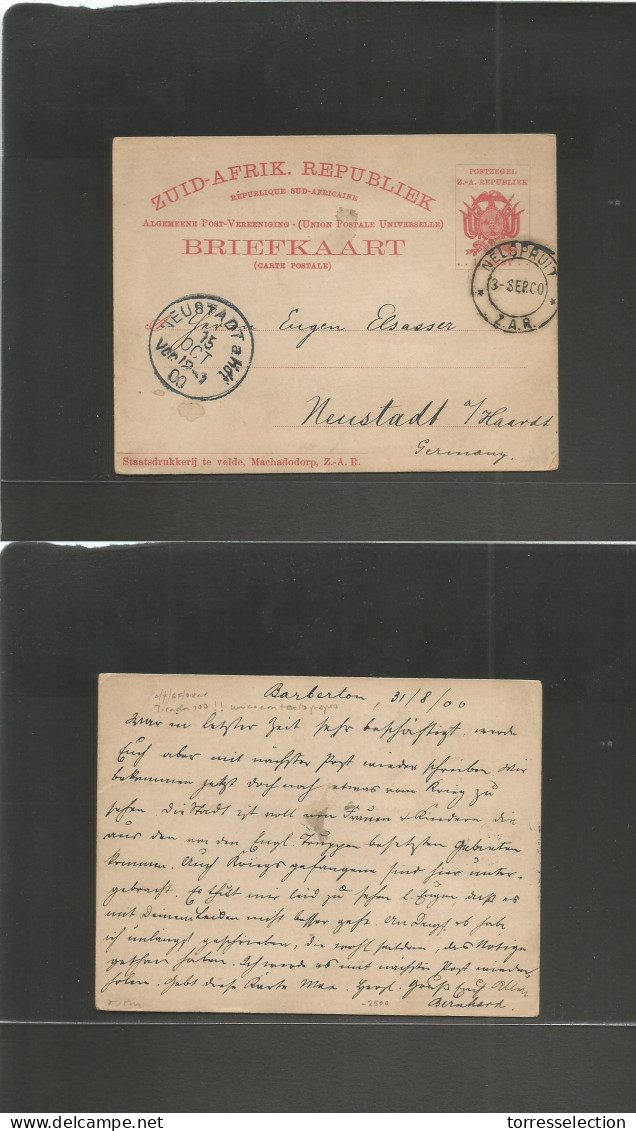 ZUID-AFRIK. REPUBLIEK
RÉPUBLIQUE SUD-AFRICAINE
ALGEMEENE POST-VEREENIGING - (UNION POSTALE UNIVERSELLE)
BRIEFKAART
(CARTE POSTALE)
POSTZEGEL
Z.-A. REPUBLIEK
NELSPRUIT
3-SEP.00
Z.A.R.
NEUSTADT a.Hdt
15
OCT
00
Herrn Eugen Elsasser
Neustadt a/Haardt
Germany.
Staatsdrukkerij te velde, Machadodorp, Z.-A. R.
Barberton, 31/8/00
War in letzter Zeit sehr beschäftigt, werde
Euch aber mit nächster Post wieder schreiben. Wir
bekommen jetzt doch noch etwas vom Krieg zu
sehen. Die Stadt ist voll von Frauen & Kindern die
aus den von den Engl. Truppen besetzten Gebieten
kommen. Auch Kriegsgefangene sind hier unter-
gebracht. Es thut mir leid zu sehen l. Eugen, daß es
mit Deinem Leiden nicht besser geht. An habe
ich unlängst geschrieben, die wohl das Nötige
gethan haben. Ich werde es mit nächster Post wieder
holen. Gebt diese Karte Max. Herzl. Gruß Euch Allen
Bernhard.
-2500
torresselection.com